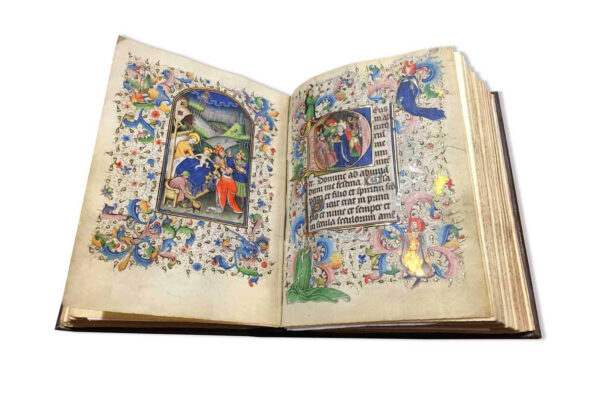 eus in
me
de. Domine ad adiuua
dum me festina. Gloria
patri et filio et spiritui
Sicut erat in princi
pio et nunc et semper et
in secula seculorum ame